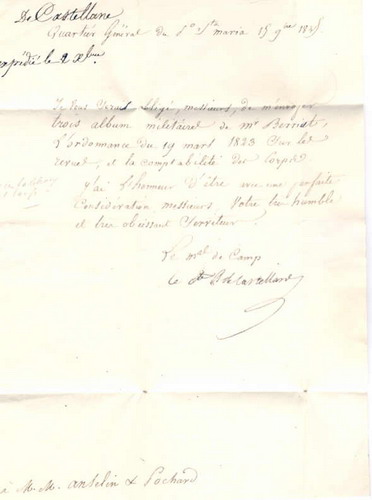 De Castellane
Quartier Général du Pto Sta maria 15 9bre
expédié le 2 Xbre
Je vous serais obligé, messieurs, de m'envoyer
trois album militaires de Mr
L'ordonnance du 19 mars 1823 sur les
revues, et la comptabilité des Corps
J'ai l'honneur d'être avec une parfaite
Considération, messieurs, Votre très humble
et très obéissant Serviteur
Le mal de Camp
le Cte de Castellane
à M. M. Anselin & Pochard